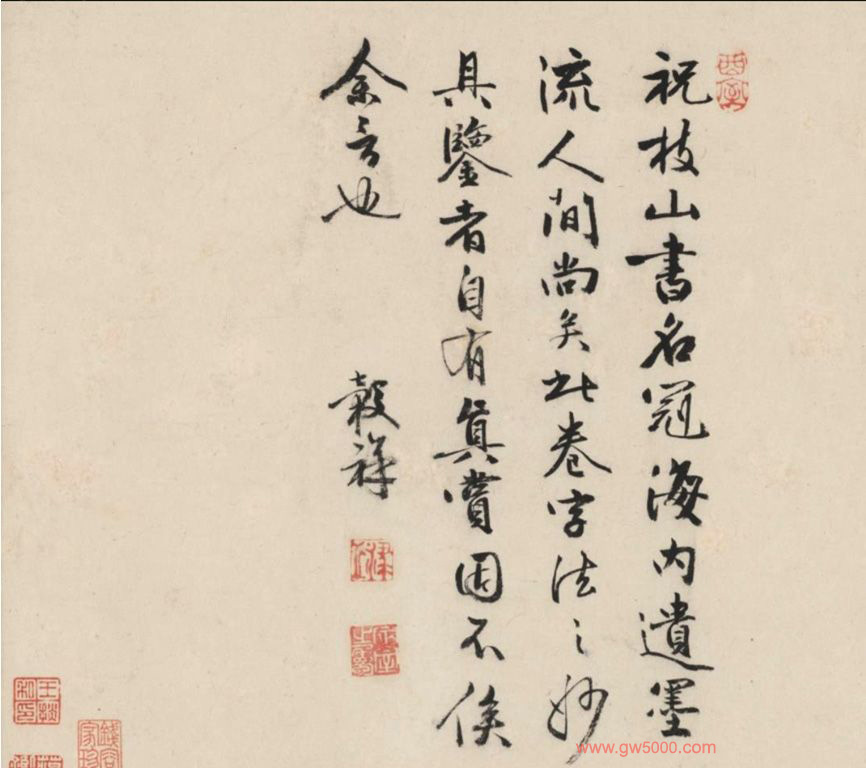 酉室
祝枝山書名冠海内遺墨
流人間尚矣此卷字法之妙
具鑒者自有眞賞固不俟
余言也
穀祥
www.gw5000.com